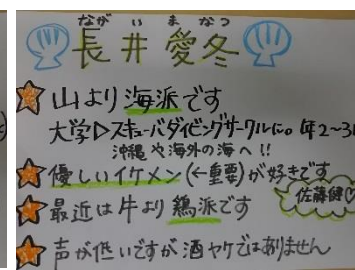 ながいまなつ
長井愛冬
山より海派です
大学▷スキューバダイビングサークルに。年2~3
沖縄や海外の海へ!!
優しいイケメン(←重要)が好きです
佐藤健♡
最近は牛より鶏派です
声が低いですが酒ヤケではありません